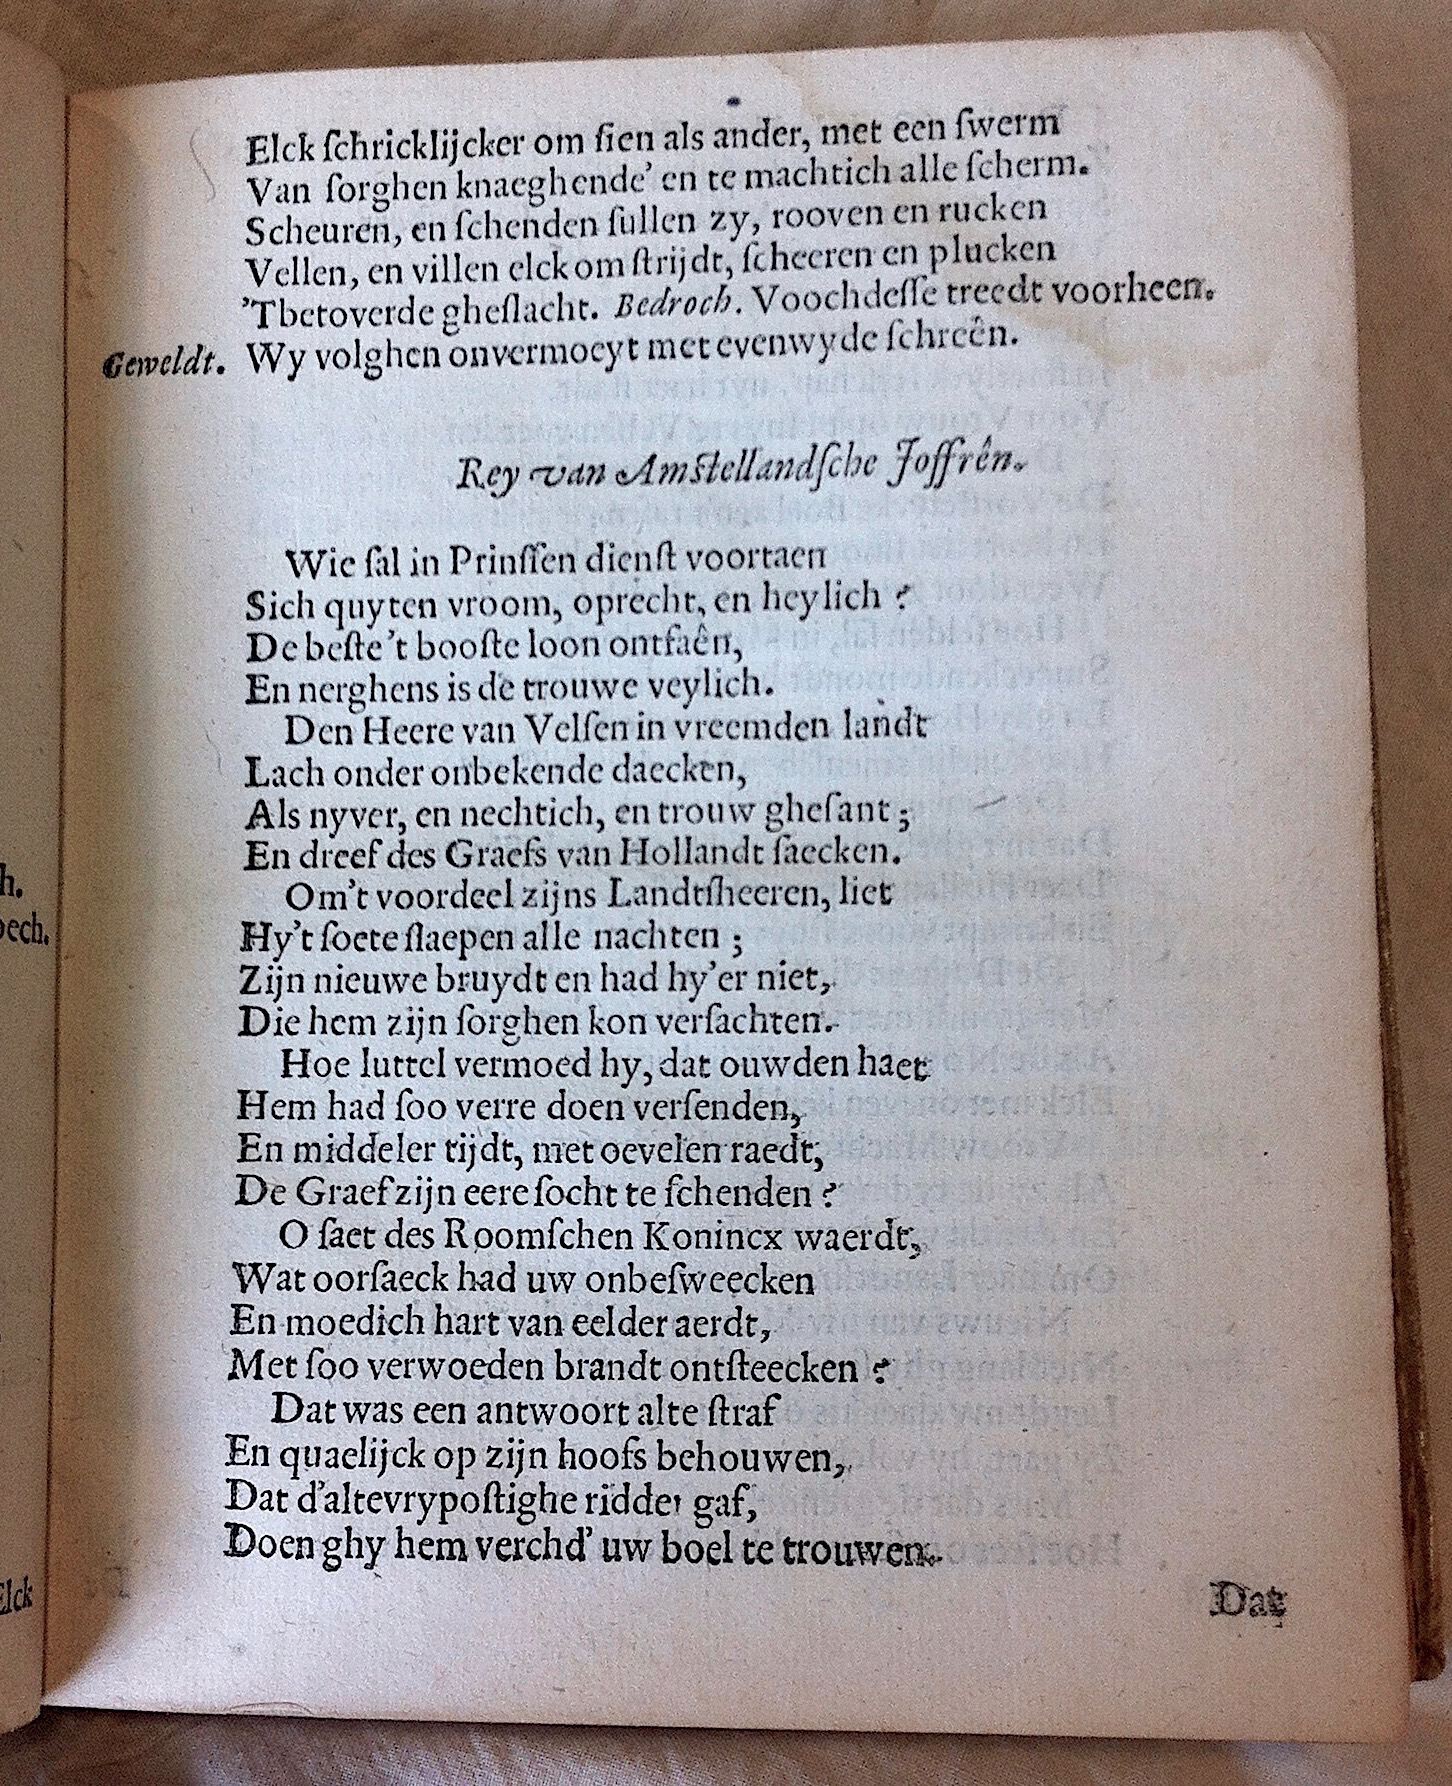 Elck ſchricklijcker om ſien als ander, met een ſwerm
Van ſorghen knaeghende’ en te machtich alle ſcherm.
Scheuren, en ſchenden ſullen zy, rooven en rucken
Vellen, en villen elck om ſtrijdt, ſcheeren en plucken
’Tbetoverde gheſlacht. Bedroch. Voochdeſſe treedt voorheen.
Geweldt. Wy volghen onvermoeyt met evenwyde ſchreên.
Rey van Amstellandſche Joffrên.
Wie ſal in Prinſſen dienſt voortaen
Sich quyten vroom, oprecht, en heylich?
De beſte ’t booſte loon ontfaên,
En nerghens is de trouwe veylich.
Den Heere van Velſen in vreemden landt
Lach onder onbekende daecken,
Als nyver, en nechtich, en trouw gheſant;
En dreef des Graefs van Hollandt ſaecken.
Om’t voordeel zijns Landtſheeren, liet
Hy’t ſoete ſlaepen alle nachten;
Zijn nieuwe bruydt en had hy’er niet,
Die hem zijn ſorghen kon verſachten.
Hoe luttel vermoed hy, dat ouwden haet
Hem had ſoo verre doen verſenden,
En middeler tijdt, met oevelen raedt,
De Graef zijn eere ſocht te ſchenden?
O ſaet des Roomſchen Konincx waerdt,
Wat oorſaeck had uw onbeſweecken
En moedich hart van eelder aerdt,
Met ſoo verwoeden brandt ontſteecken?
Dat was een antwoort alte ſtraf
En quaelijck op zijn hoofs behouwen,
Dat d’altevrypoſtighe ridder gaf,
Doen ghy hem verchd’ uw boel te trouwen.
Dat
h.
ech.
Elck